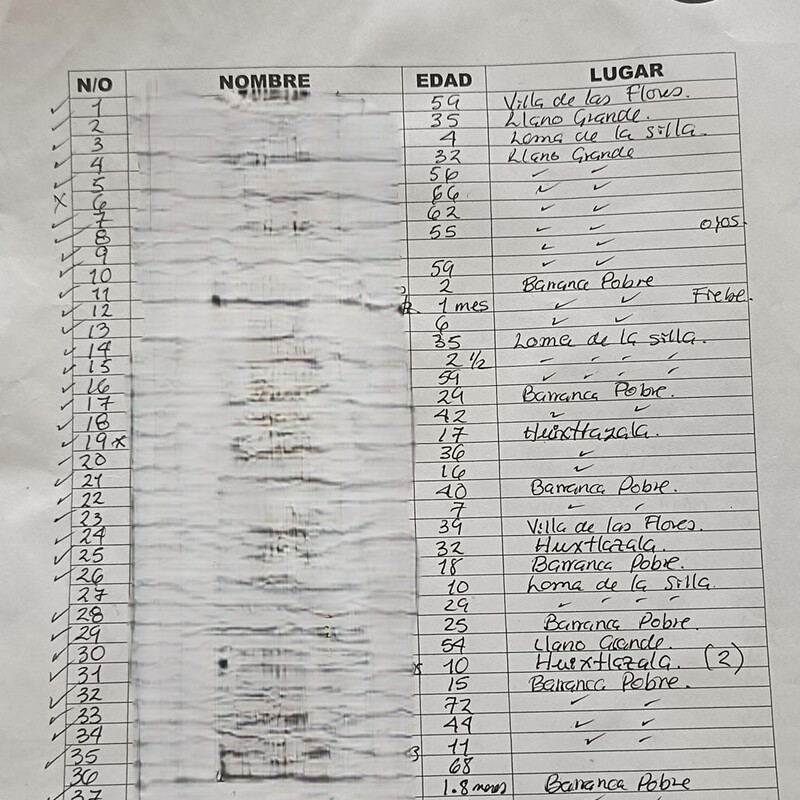 N/O NOMBRE EDAD LUGAR
✓ 1 59 Villa de las Flores.
✓ 2 35 Llano Grande.
✓ 3 4 Loma de la silla.
✓ 4 32 Llano Grande
✓ 5 56 ✓ ✓
x 6 66 ✓ ✓
✓ 7 62 ✓ ✓
✓ 8 55 ✓ ✓ ojos.
✓ 9 ✓ ✓
✓ 10 59 ✓ ✓
✓ 11 2 Barranca Pobre
✓ 12 1 mes ✓ ✓ Frebe.
✓ 13 6 ✓ ✓
✓ 14 35 Loma de la silla.
✓ 15 2 1/2 ✓ ✓ ✓ ✓
✓ 16 59 ✓ ✓ ✓ ✓
✓ 17 29 Barranca Pobre.
✓ 18 42 ✓ ✓
✓ 19 x 17 Huixtlazala.
✓ 20 36 ✓
✓ 21 16 ✓
✓ 22 40 Barranca Pobre.
✓ 23 7 ✓ ✓
✓ 24 39 Villa de las Flores.
✓ 25 32 Huxtlazala.
✓ 26 18 Barranca Pobre.
27 10 Loma de la Silla
✓ 28 29 ✓ ✓ ✓ ✓
✓ 29 25 Barranca Pobre.
✓ 30 54 Llano Grande.
✓ 31 10 Huixtlazala. (2)
✓ 32 15 Barranca Pobre.
✓ 33 72 ✓ ✓
✓ 34 44 ✓ ✓
✓ 35 11 ✓ ✓
36 68
✓ 37 1.8 meses Barranca Pobre